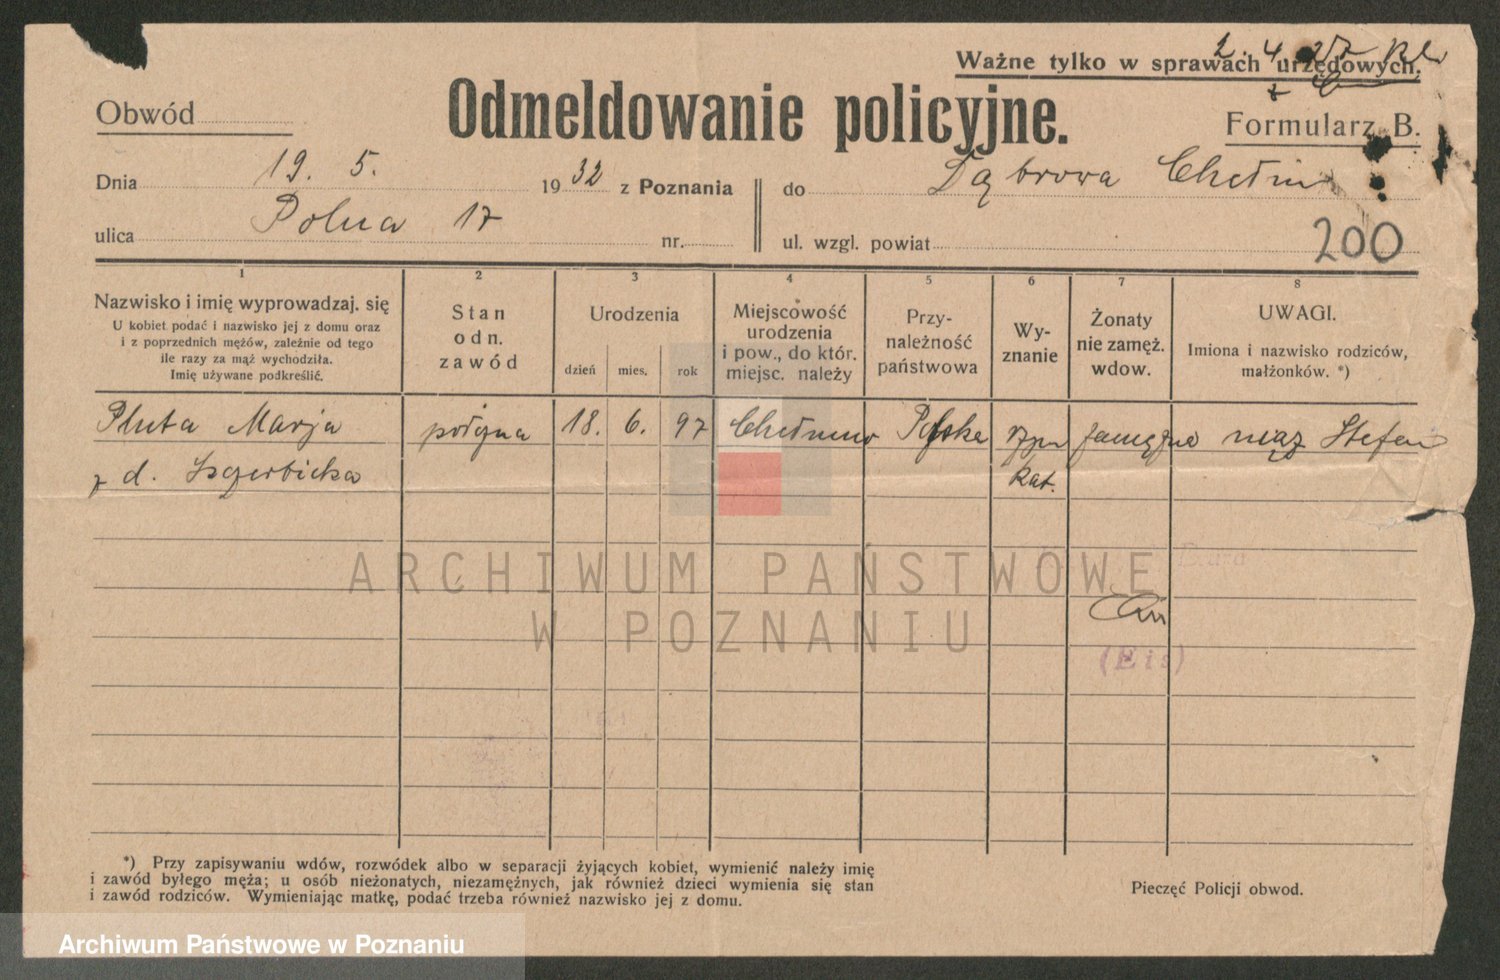 Ważne tylko w sprawach urzędowych.
Obwód
Odmeldowanie policyjne.
Formularz B.
Dnia 19. 5. 1932 z Poznania
do Dąbrowa Chełmi
ulica Polna 17 nr.
ul. wzgl. powiat
200
1 2 3 4 5 6 7 8
Nazwisko i imię wyprowadzaj. się
U kobiet podać i nazwisko jej z domu oraz
i z poprzednich mężów, zależnie od tego
ile razy za mąż wychodziła.
Imię używane podkreślić.
Stan
odn.
zawód
Urodzenia
dzień mies. rok
Miejscowość
urodzenia
i pow., do któr.
miejsc. należy
Przy-
należność
państwowa
Wy-
znanie
Żonaty
nie zamęż.
wdow.
UWAGI.
Imiona i nazwisko rodziców,
małżonków. *)
Pluta Marja położna 18. 6. 97 Chełmno Polska rzym zamężna mąż Stefan
z d. Szczerbicka kat.
ARCHIWUM PAŃSTWOWE
W POZNANIU
(Eis)
*) Przy zapisywaniu wdów, rozwódek albo w separacji żyjących kobiet, wymienić należy imię
i zawód byłego męża; u osób nieżonatych, niezamężnych, jak również dzieci wymienia się stan
i zawód rodziców. Wymieniając matkę, podać trzeba również nazwisko jej z domu.
Pieczęć Policji obwod.
Archiwum Państwowe w Poznaniu